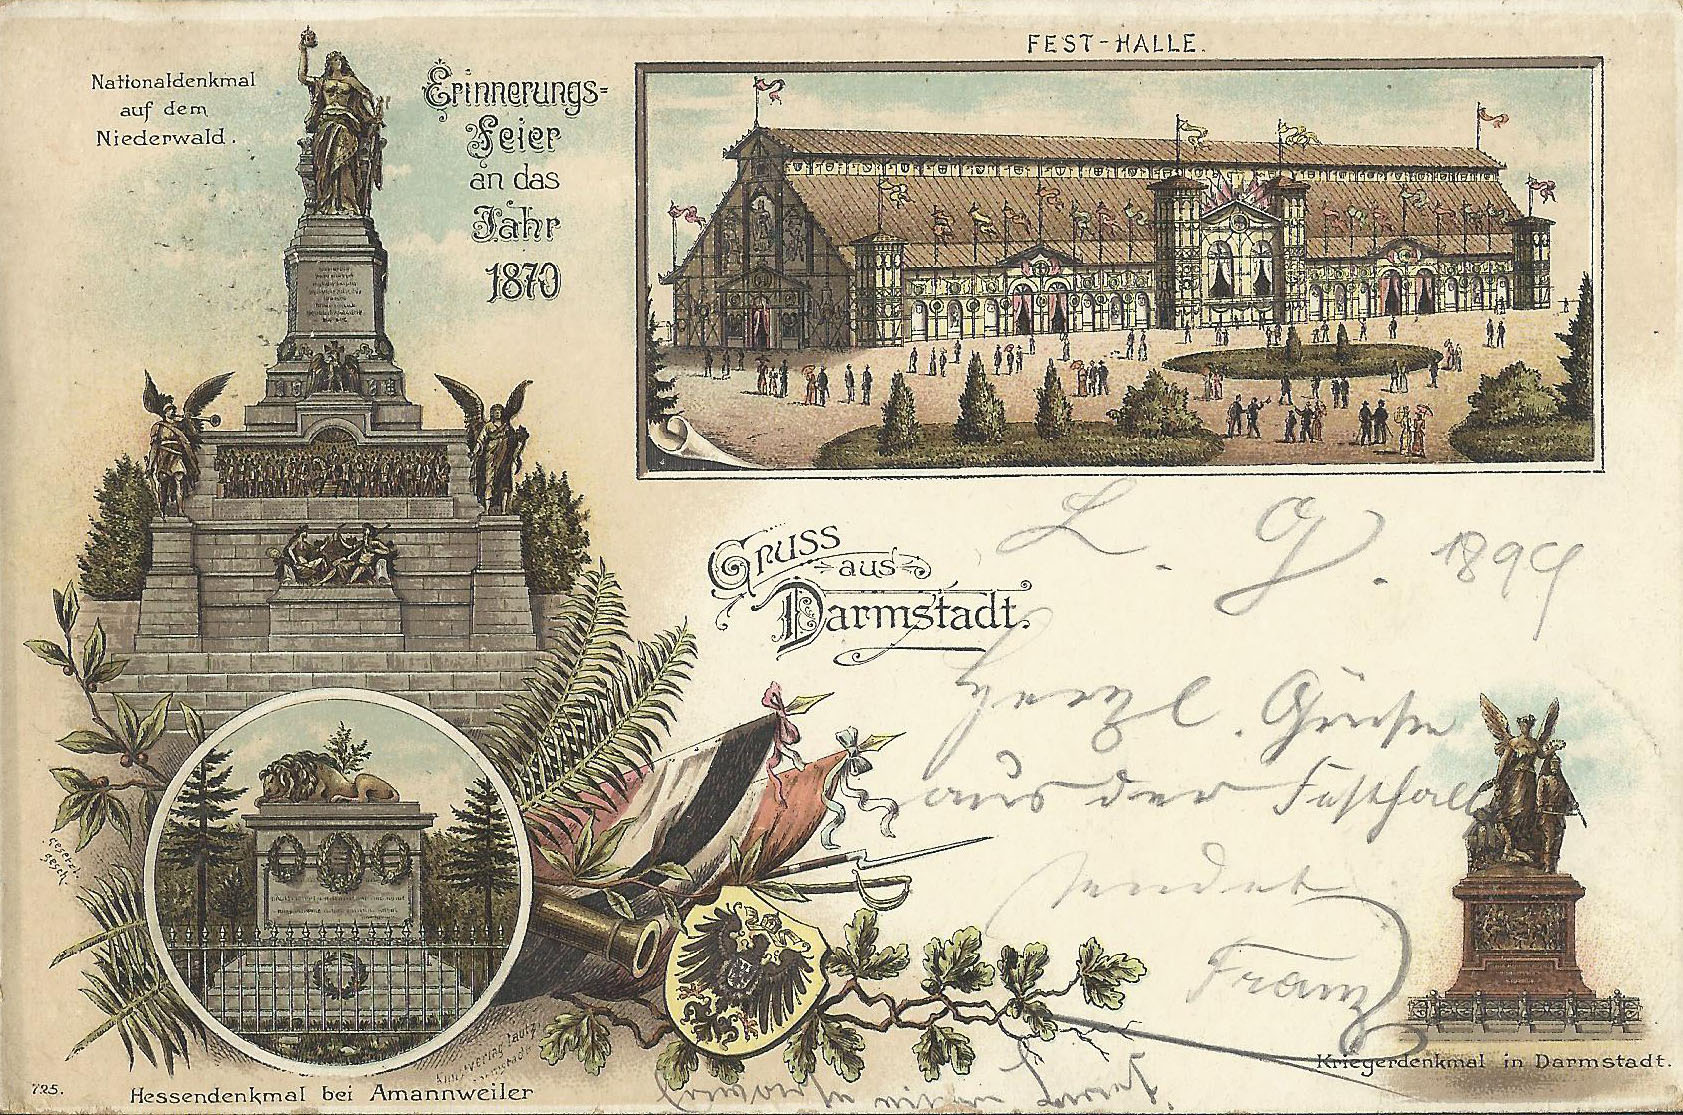 Nationaldenkmal
auf dem
Niederwald.
Erinnerungs-
Feier
an das
Jahr
1870
FEST-HALLE.
Gruss
aus
Darmstadt.
L. G. 1895
Herzl. Grüße
aus der Festhalle
sendet
Franz
gesetzl.
gesch.
Kunstverlag Lautz
Darmstadt
725.
Hessendenkmal bei Amannweiler
Kriegerdenkmal in Darmstadt.